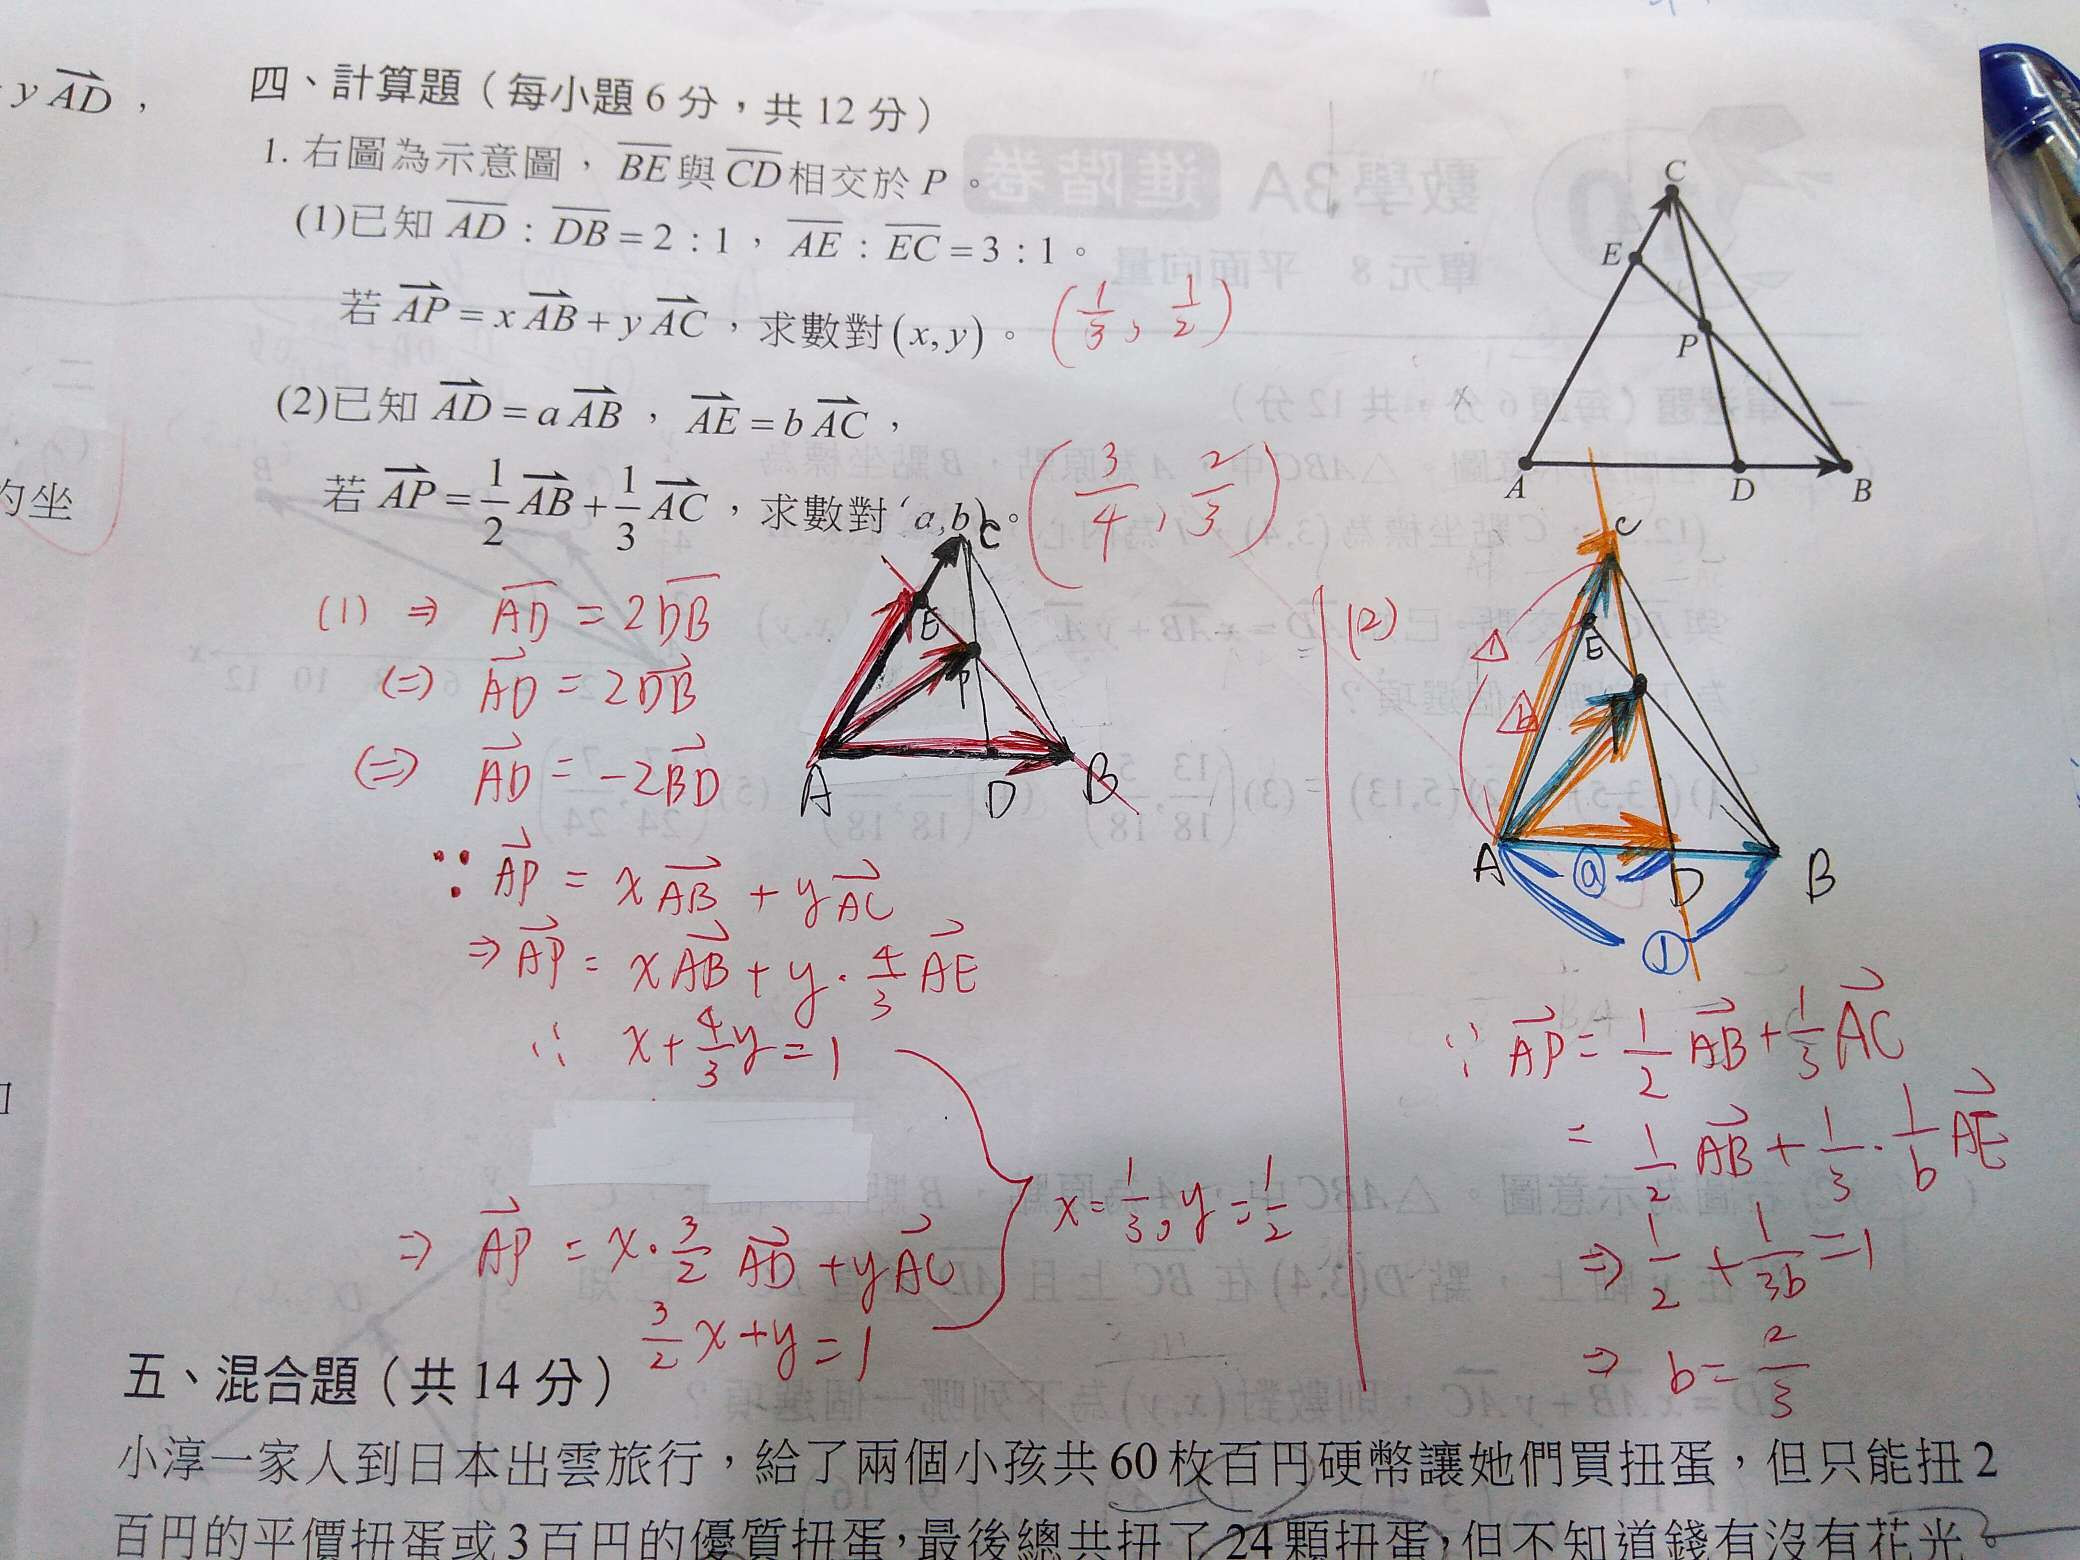 y AD ,
四、計算題(每小題 6 分,共 12 分)
1. 右圖為示意圖, BE 與 CD 相交於 P 。
(1)已知 AD : DB = 2 : 1 , AE : EC = 3 : 1 。
若 AP = x AB + y AC ,求數對 (x, y) 。 (1/3, 1/2)
(2)已知 AD = a AB , AE = b AC ,
若 AP = 1/2 AB + 1/3 AC ,求數對 (a, b) 。 (3/4, 2/3)
的坐
C
E
P
A D B
(1) ⇒ AD = 2DB
(=) AD = 2DB
(=) AD = -2BD
∵ AP = xAB + yAC
⇒ AP = xAB + y · 4/3 AE
∴ x + 4/3 y = 1
⇒ AP = x · 3/2 AD + yAC
3/2 x + y = 1
x = 1/3, y = 1/2
C
E
P
A D B
(2)
C
1
E
b
P
A a D B
1
∵ AP = 1/2 AB + 1/3 AC
= 1/2 AB + 1/3 · 1/b AE
⇒ 1/2 + 1/3b = 1
⇒ b = 2/3
五、混合題(共 14 分)
小淳一家人到日本出雲旅行,給了兩個小孩共 60 枚百円硬幣讓她們買扭蛋,但只能扭 2
百円的平價扭蛋或 3 百円的優質扭蛋,最後總共扭了 24 顆扭蛋,但不知道錢有沒有花光。